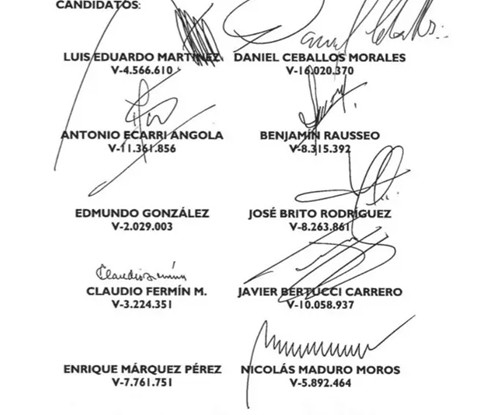 CANDIDATOS:
LUIS EDUARDO MARTÍNEZ DANIEL CEBALLOS MORALES
V-4.566.610 V-16.020.370
Daniel Ceballos
ANTONIO ECARRI ANGOLA BENJAMÍN RAUSSEO
V-11.361.856 V-8.315.392
EDMUNDO GONZÁLEZ JOSÉ BRITO RODRÍGUEZ
V-2.029.003 V-8.263.861
Claudio Fermín
CLAUDIO FERMÍN M. JAVIER BERTUCCI CARRERO
V-3.224.351 V-10.058.937
ENRIQUE MÁRQUEZ PÉREZ NICOLÁS MADURO MOROS
V-7.761.751 V-5.892.464